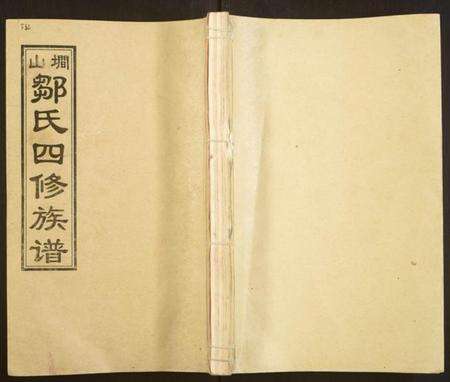 墹山
鄒氏四修族谱